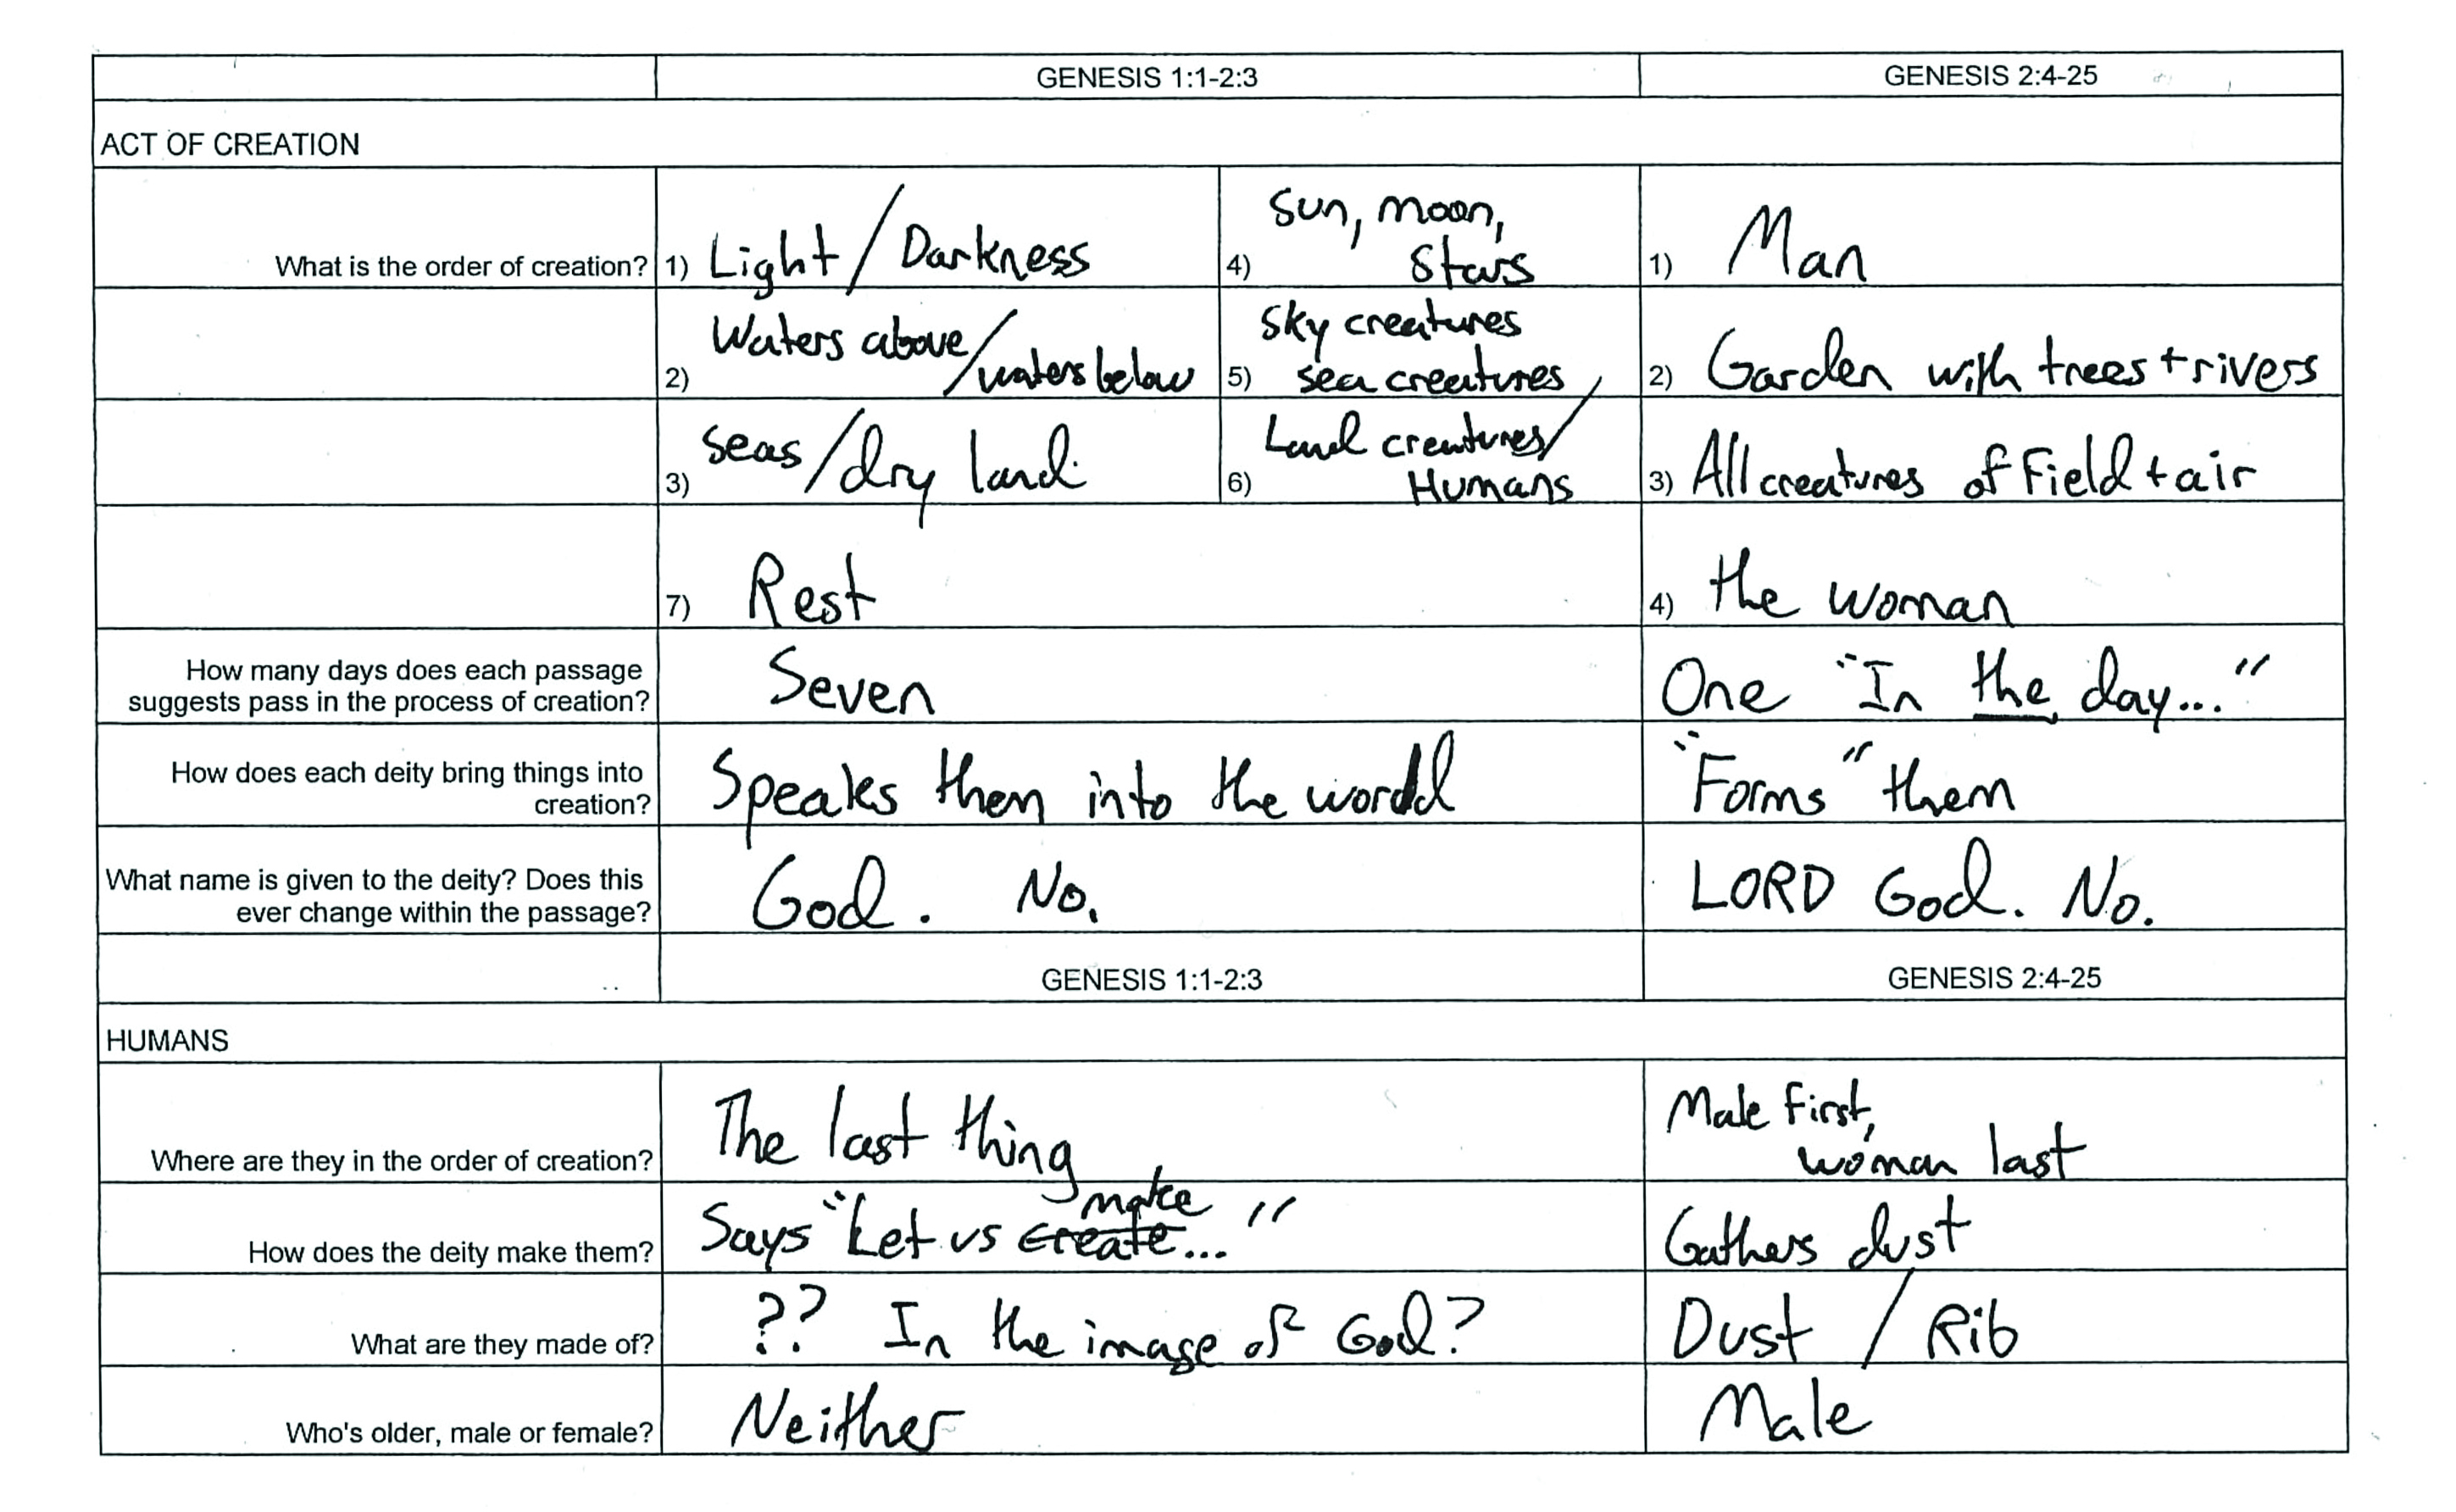 GENESIS 1:1-2:3 GENESIS 2:4-25
ACT OF CREATION
What is the order of creation? 1) Light / Darkness 4) Sun, moon, Stars 1) Man
2) Waters above / waters below 5) Sky creatures sea creatures / 2) Garden with trees + rivers
3) seas / dry land 6) Land creatures / Humans 3) All creatures of Field + air
7) Rest 4) the woman
How many days does each passage
suggests pass in the process of creation? Seven One "In the day..."
How does each deity bring things into
creation? Speaks them into the world "Forms" them
What name is given to the deity? Does this
ever change within the passage? God. No. LORD God. No.
GENESIS 1:1-2:3 GENESIS 2:4-25
HUMANS
Where are they in the order of creation? The last thing Male First, woman last
How does the deity make them? Says "Let us create make ..." Gathers dust
What are they made of? ?? In the image of God? Dust / Rib
Who's older, male or female? Neither Male